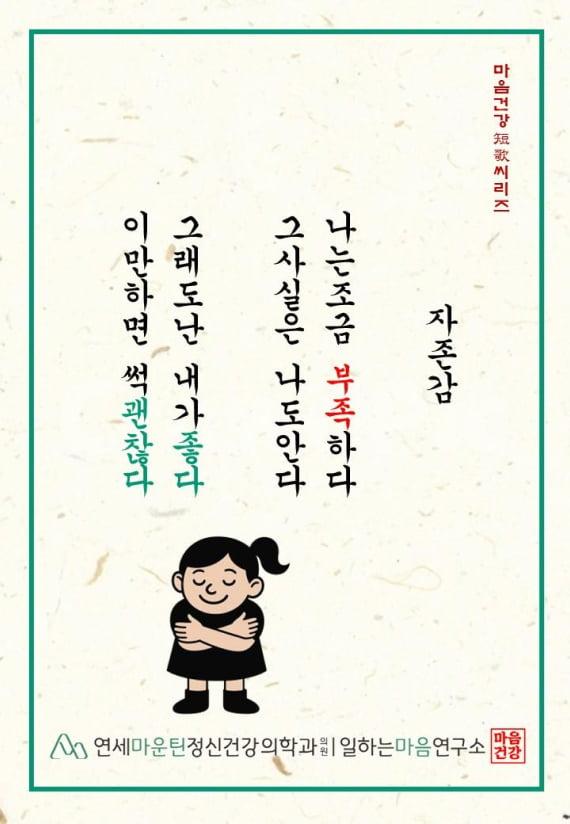 마음건강 短歌 씨리즈
자존감
나는조금 부족하다
그사실은 나도안다
그래도난 내가좋다
이만하면 썩괜찮다
연세마운틴정신건강의학과의원 | 일하는마음연구소
마음
건강